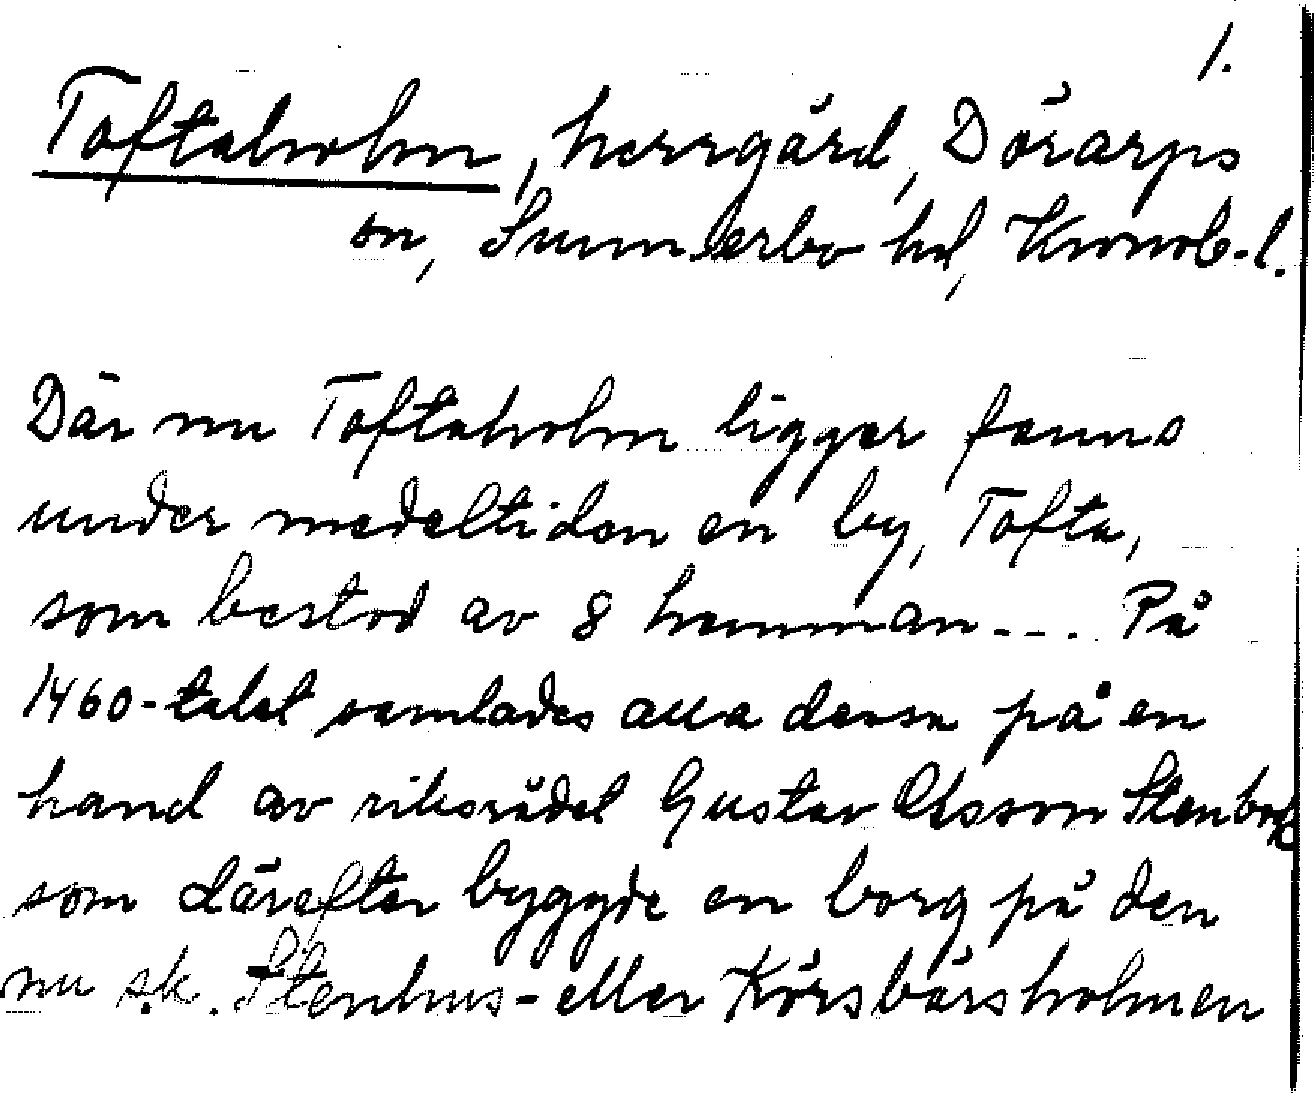 1.
Toftaholm, herrgård, Dörarps
sn, Sunnerbo hd, Kronob. l.
Där nu Toftaholm ligger fanns
under medeltiden en by, Tofta,
som bestod av 8 hemman --- På
1460-talet samlades alla dessa på en
hand av riksrådet Gustav Olsson Stenbock
som därefter byggde en borg på den
nu s.k. Stenhus- eller Körsbärsholmen